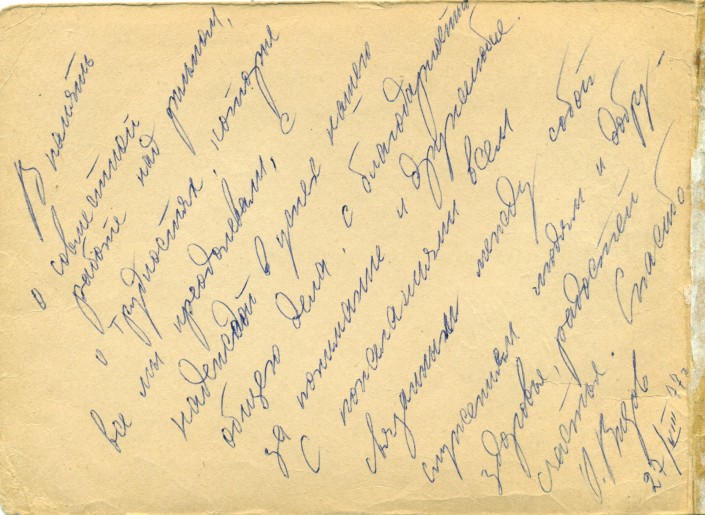 В память
о совместной
работе над фильмом,
о трудностях, которые
все мы преодолевали, с
надеждой в успех нашего
общего дела, с благодарностью
за понимание и дружелюбие.
С пожеланиями всем
связанным между собой
служением людям и добру –
здоровья, радостей
счастья. Спасибо
27/VIII